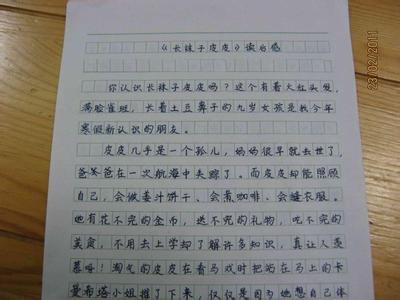 《长袜子皮皮》读后感
你认识长袜子皮皮吗?这个有着火红头发,
满脸雀斑,长着土豆鼻子的九岁女孩是我今年
寒假新认识的朋友。
皮皮几乎是一个孤儿,妈妈很早就去世了,
爸爸在一次航海中失踪了。而皮皮却能照顾
自己,会做姜汁饼干、会煮咖啡、会缝衣服。
她有花不完的金币,送不完的礼物,吃不完的
美食,不用去上学却了解许多知识,真让人羡
慕呀!淘气的皮皮在看马戏时把站在马上的卡
曼希塔小姐推了下来,仅仅是因为她想自己体
23/02/2011